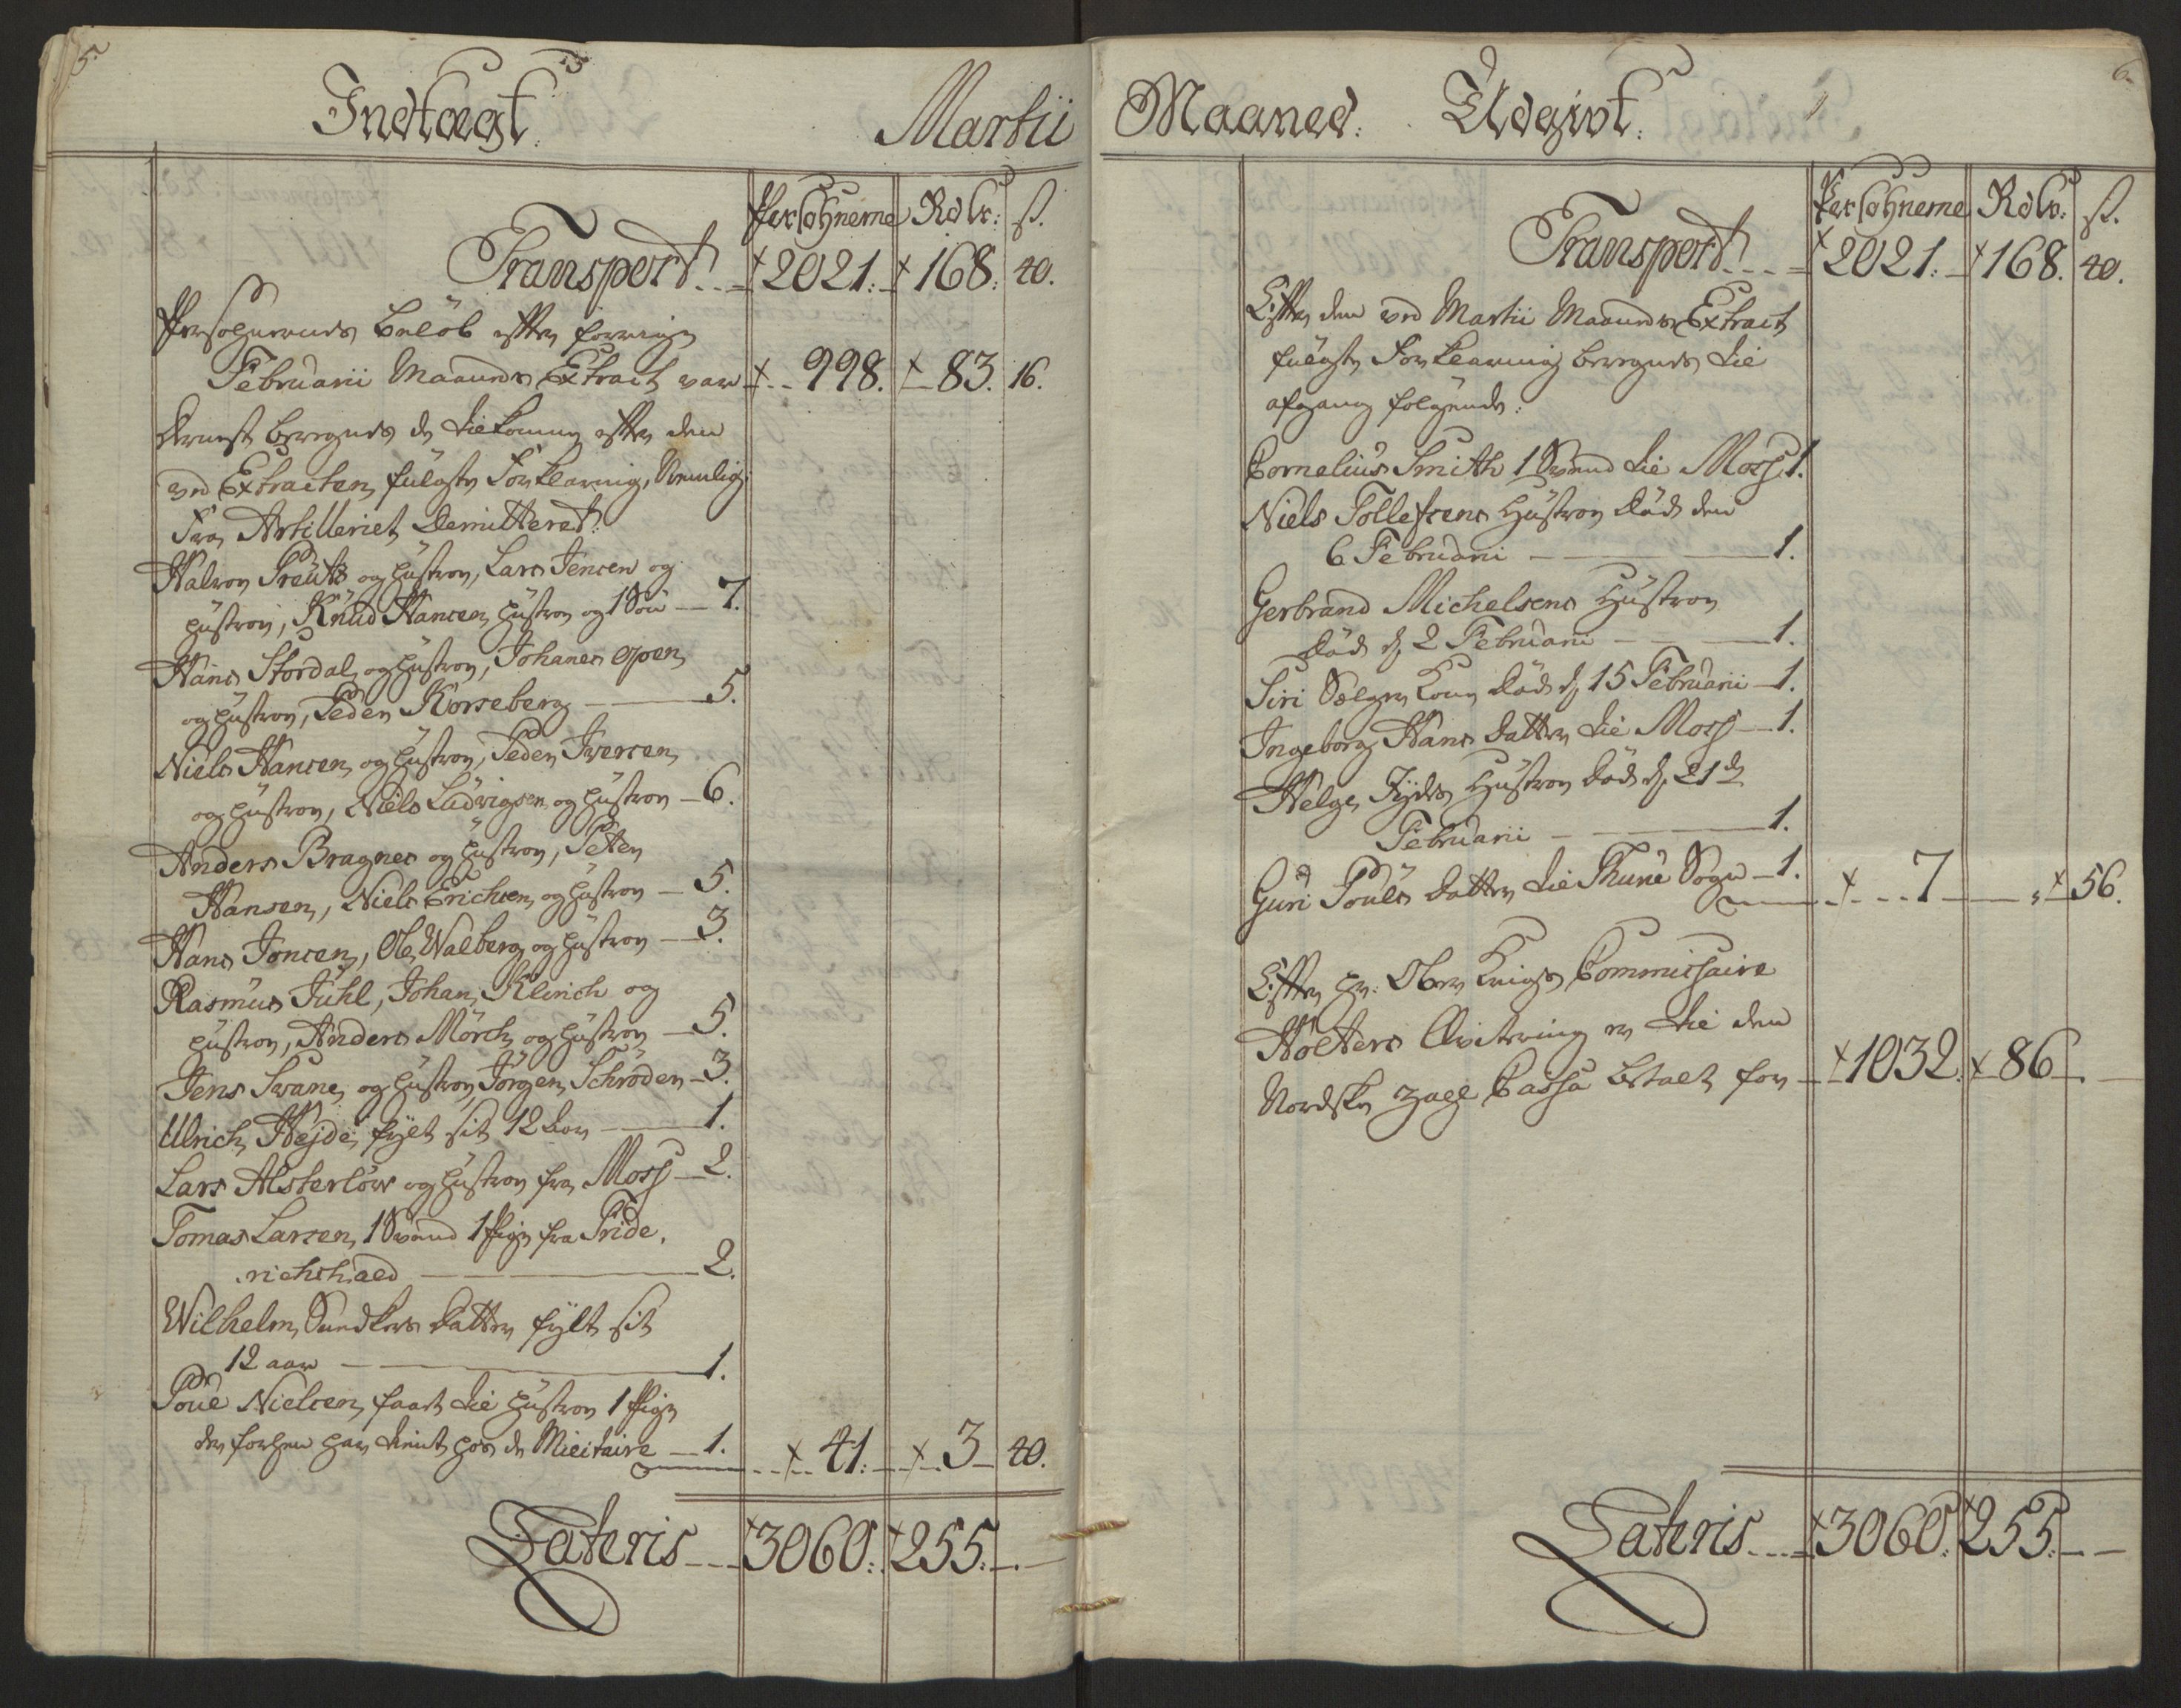 5.
Indtægt.
Martii
Persohnerne Rdlr: ß.
Transport 2021. 168. 40.
Persohnernes beløb efter forrige
Februarii Maaneds Extract var 998. 83. 16.
Dernest beregnes de tilkomne efter den
ved Extracten fulgte Forklaring, Nemlig:
Fra Artilleriet Demitteret:
Halvor Preüts og Hustrue, Lars Jensen og
Hustrue, Knud Hansen Hustrue og 1 Søn 7.
Hans Stordal og Hustrue, Johanes Open
og Hustrue, Peder Korseberg 5.
Niels Hansen og Hustrue, Peder Iversen
og Hustrue, Niels Ludvigsen og Hustrue 6.
Anders Bragnes og Hustrue, Peter
Hansen, Niels Erichsen og Hustrue 5.
Hans Jonsen, Ole Walberg og Hustrue 3.
Rasmus Juhl, Johan Klinch og
Hustrue, Anders Mörch og Hustrue 5.
Jens Svane og Hustrue, Jörgen Schröder 3.
Ulrich Hejde fylt sit 12 Aar 1.
Lars Alsterlöw og Hustrue fra Moss 2.
Tomas Larsen, 1 Svend 1 Pige fra Fride.
richshald 2.
Wilhelm Sundkers Datter fylt sit
12 aar 1.
Poul Nielsen faaet til Hustrue 1 Pige
der forhen har tient hos de Militaire 1. 41. 3 40.
Lateris 3060. 255.
6.
Maaned. Udgivt.
Persohnerne Rdlr. ß.
Transport 2021. 168. 40.
Efter den ved Martii Maaneds Extract
fulgte Forklaring beregnes til
afgang følgende:
Cornelius Smith 1 Svend til Moss 1.
Niels Tollefsens Hustrue Död den
6 Februarii 1.
Gerbrand Michelsens Hustrue
Död d. 2 Februarii 1.
Siri Sælger Kone Död d. 15 Februarii 1.
Ingeborg Hans Datter til Moss 1.
Helge Jyders Hustrue Död d. 21de
Februarii 1.
Guri Pouls Datter til Thune Sogn 1. 7 56.
Efter Hr. Ober Krigs Commissaire
Holters Qvitering er til den
Nordske Zahl Cassa betalt for 1032. 86
Lateris 3060. 255.